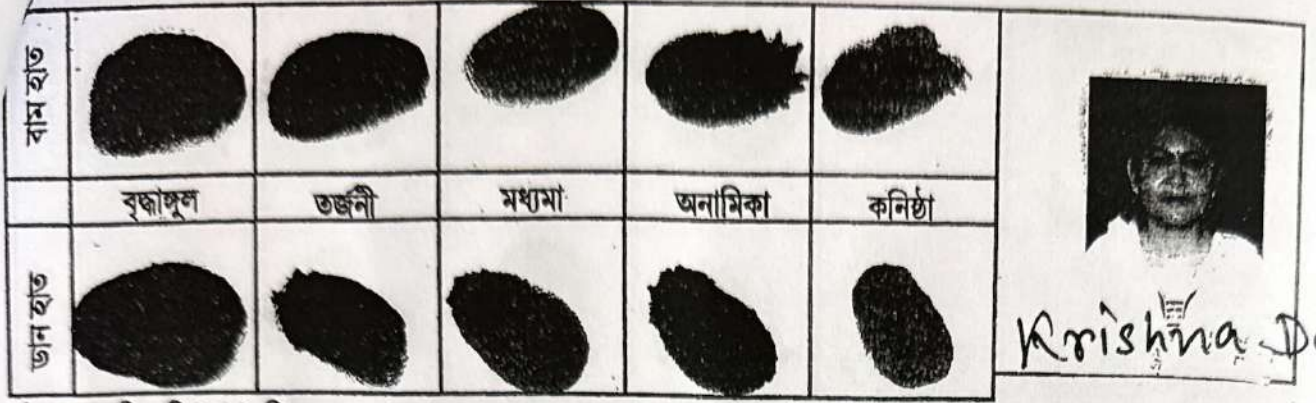 বাম হাত
বৃদ্ধাঙ্গুল তর্জনী মধ্যমা অনামিকা কনিষ্ঠা
ডান হাত
Krishna D